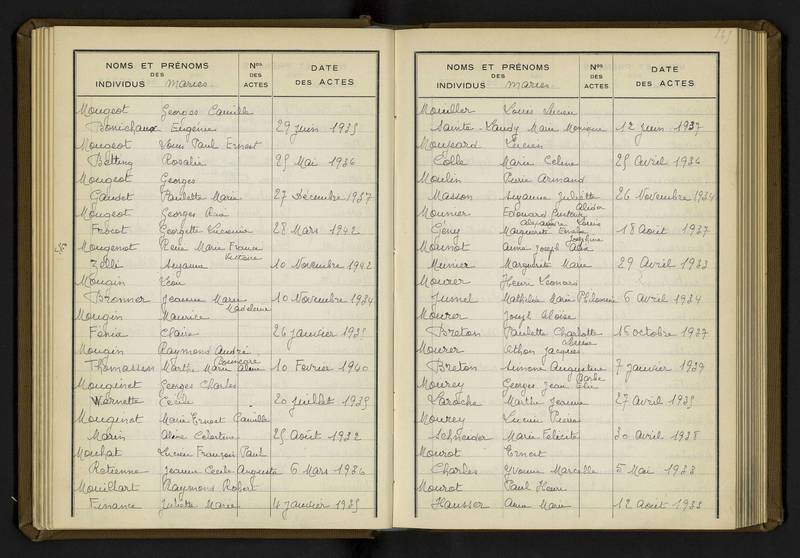 NOMS ET PRÉNOMS
DES
INDIVIDUS mariés
Nos
DES
ACTES
DATE
DES ACTES
Mougeot Georges Camille
Bonichaux Eugénie 29 Juin 1935
Mougeot Louis Paul Ernest
Betting Rosalie 25 Mai 1936
Mougeot Georges
Gaudet Paulette Marie 27 Décembre 1937
Mougeot Georges
Frocot Georgette 28 Mars 1942
Mougenot René Marie France
Victoire
Zelli Suzanne 10 Novembre 1942
Mougin Léon
Bronner Jeanne Marie 10 Novembre 1934
Madeleine
Mougin Maurice
Fénix Claire 26 Janvier 1935
Mougin Raymond André
Thomassin Marthe Marie Aline 10 Février 1940
Mouginet Georges Charles
Warnette Cécile 20 Juillet 1935
Mouginot Marie Ernest Camille
Marin Aline Célestine 25 Août 1932
Mouhat Lucien François Paul
Retienne Jeanne Cécile Augusta 6 Mars 1936
Mouillart Raymond Robert
Finance Juliette Marie 4 Janvier 1935
NOMS ET PRÉNOMS
DES
INDIVIDUS mariés
Nos
DES
ACTES
DATE
DES ACTES
Mouiller Louis Lucien
Sainte-Laudy Marie Monique 12 Juin 1937
Moujeard Lucien
Colle Marie Céline 25 Avril 1936
Moulin Pierre Armand
Masson Suzanne Juliette 26 Novembre 1934
Mounier Edouard Gustave
Alexandre Louis
Gény Marguerite Emilie 18 Août 1937
Joséphine
Mounot Anne Joseph
Munier Marguerite Marie 29 Avril 1933
Mourer Henri Léonard
Jumel Mathilde Marie Philomène 6 Avril 1934
Mourer Joseph Aloïse
Breton Paulette Charlotte 16 Octobre 1937
Mourer Athon Jacques
Breton Simone Augustine 7 Janvier 1939
Mourey Georges Jean Elie
Laroche Marthe Jeanne 27 Avril 1935
Mourey Lucien Pierre
Schneider Marie Félicité 30 Avril 1938
Mourot Ernest
Charles Yvonne Marcelle 5 Mai 1933
Mourot Paul Henri
Hausser Anna Marie 12 Août 1933